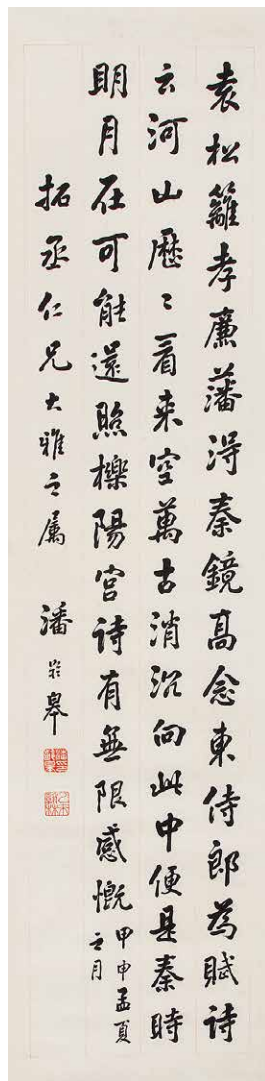 袁松籬孝廉藩淂秦鏡高念東侍郎為賦詩
云河山歷〻看来空萬古消沉向此中便是秦時
明月在可能還照櫟陽宮詩有無限感慨
甲申孟夏
之月
拓丞仁兄大雅之属 潘齡皋